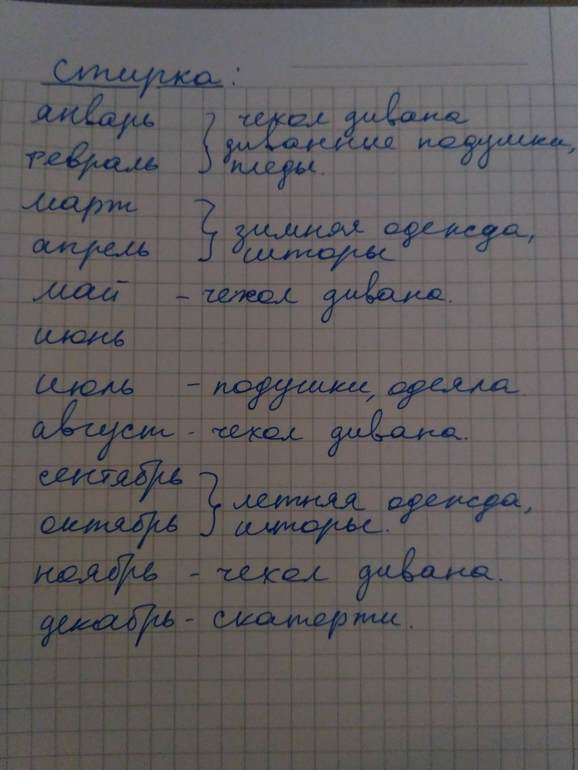 Стирка:
январь } чехол дивана
февраль } диванные подушки, пледы.
март }
апрель } зимняя одежда, шторы
май - чехол дивана.
июнь
июль - подушки, одеяла
август - чехол дивана.
сентябрь }
октябрь } летняя одежда, шторы.
ноябрь - чехол дивана.
декабрь - скатерти.